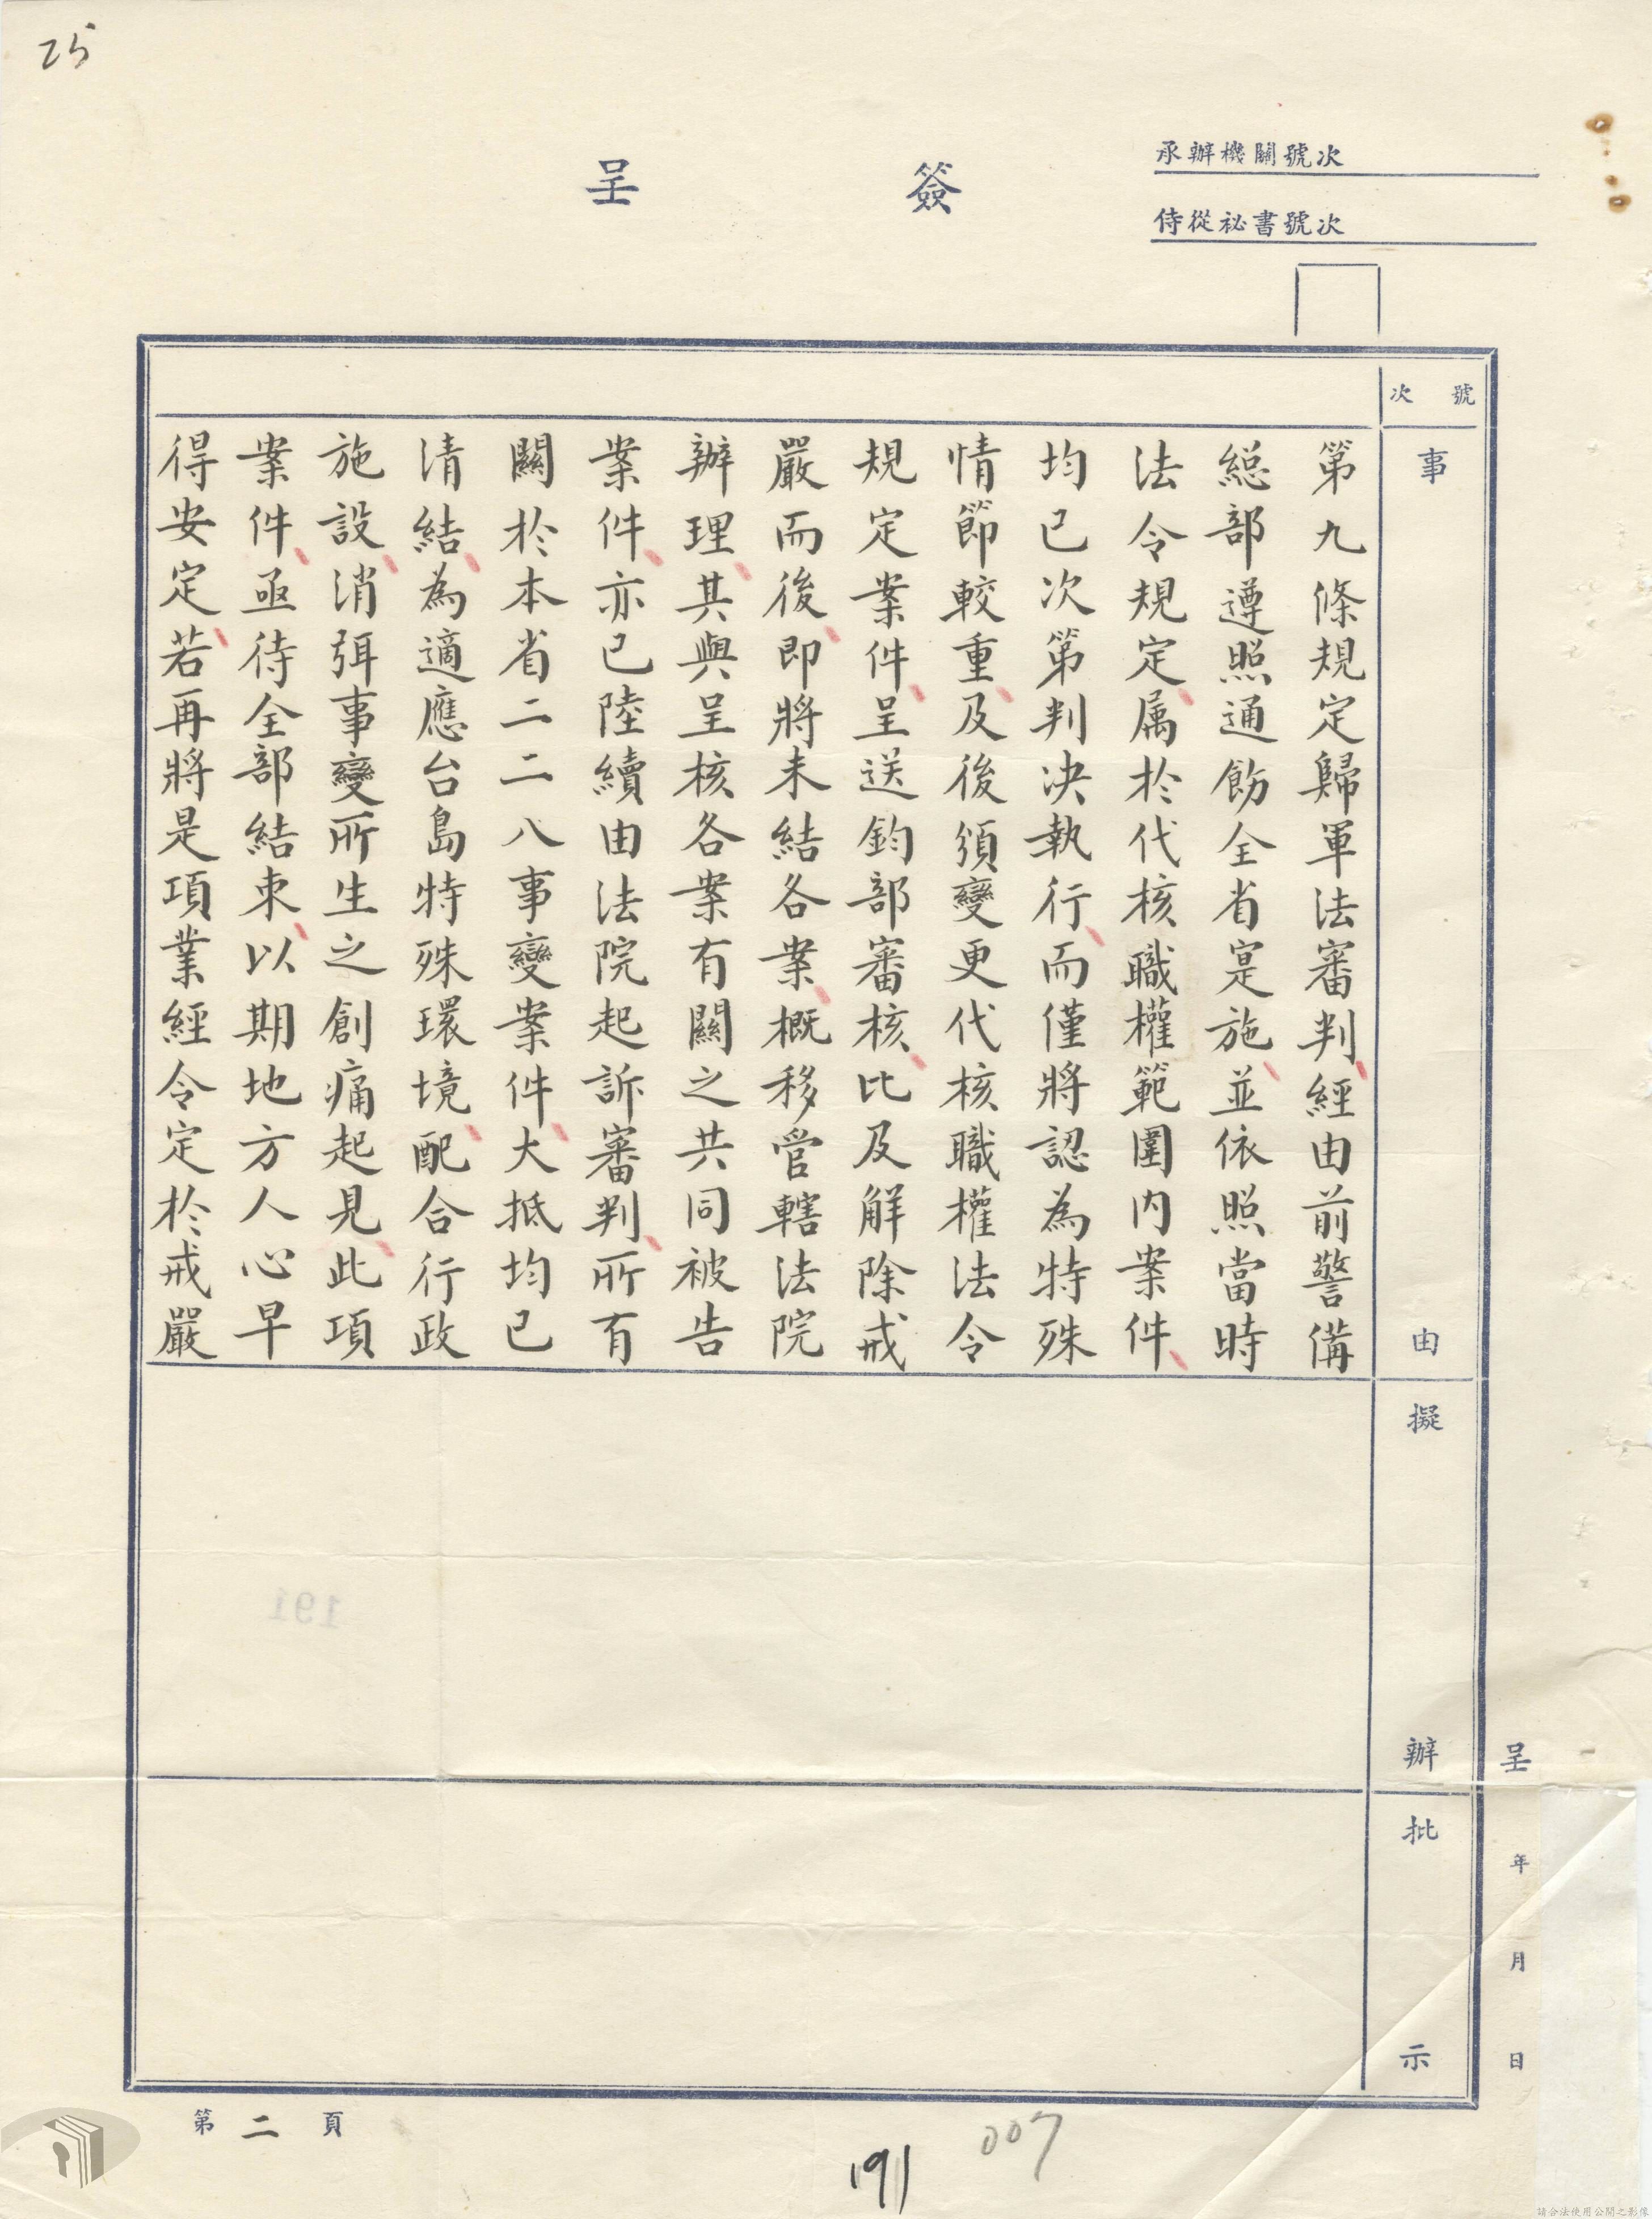 25
簽呈
承辦機關號次
侍從祕書號次
號次
事由
第九條規定歸軍法審判、經由前警備
総部遵照通飭全省寔施、並依照當時
法令規定、属於代核職權範圍内案件、
均已次第判决執行、而僅將認為特殊
情節較重、及後頒變更代核職權法令
規定案件、呈送鈞部審核、比及解除戒
嚴而後、即將未結各案、概移管轄法院
辦理、其與呈核各案有關之共同被告
案件、亦已陸續由法院起訴審判、所有
關於本省二二八事變案件、大抵均已
清結、為適應台島特殊環境、配合行政
施設、消弭事變所生之創痛起見、此項
案件、亟待全部結束、以期地方人心早
得安定、若再將是項業經令定於戒嚴
擬辦
批示
呈 年 月 日
第二頁
191
007
191
請合法使用公開之影像